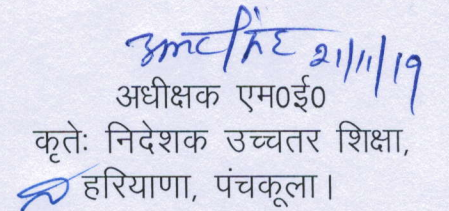 21/11/19
अधीक्षक एम0ई0
कृतेः निदेशक उच्चतर शिक्षा,
हरियाणा, पंचकूला।